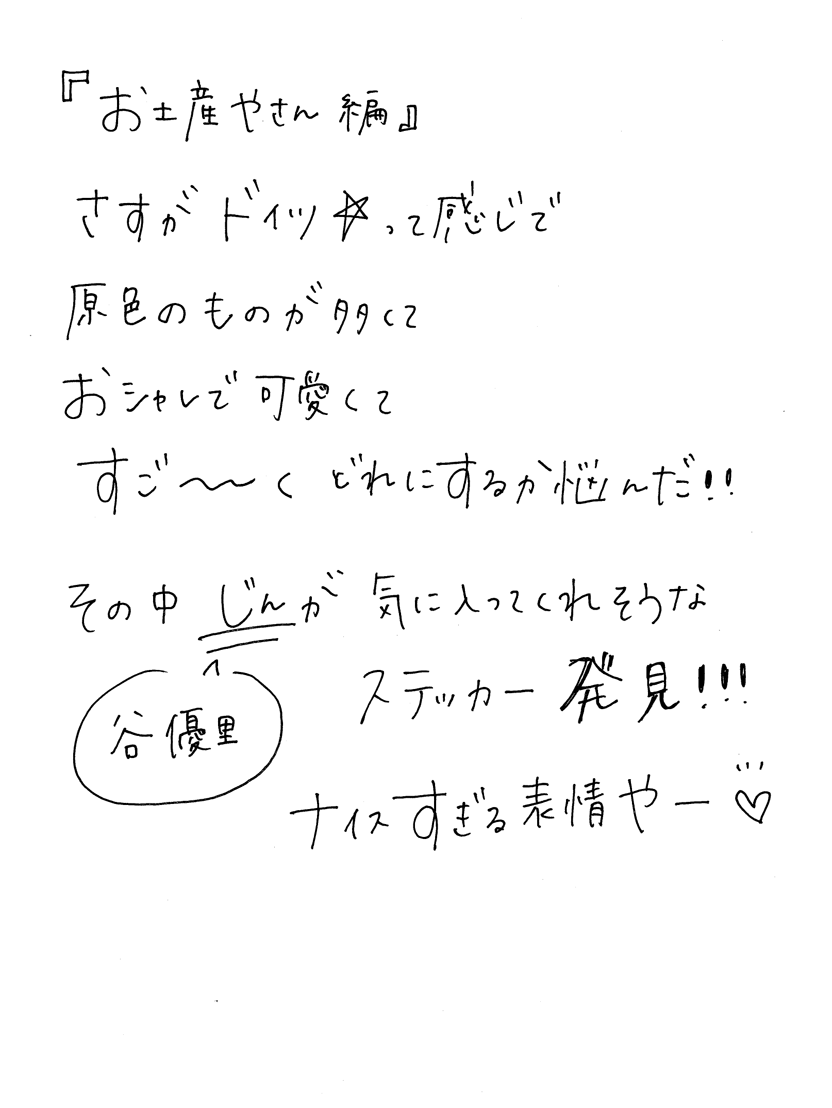 『お土産やさん編』
さすがドイツ☆って感じで
原色のものが多くて
おシャレで可愛くて
すご〜〜く どれにするか悩んだ!!
その中 じんが 気に入ってくれそうな
谷優里
ステッカー発見!!!
ナイスすぎる表情やー♡